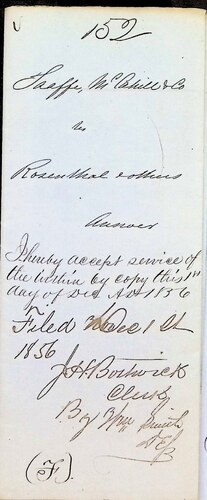 152
Saeffe, McCahill & Co
vs
Rosenthal & others
Answer
I hereby accept service of
the within by copy this 1st
day of Dec AD 1856
Filed Dec 1st
1856
J. H. Bostwick
Clerk
By Wm Smith
(F).